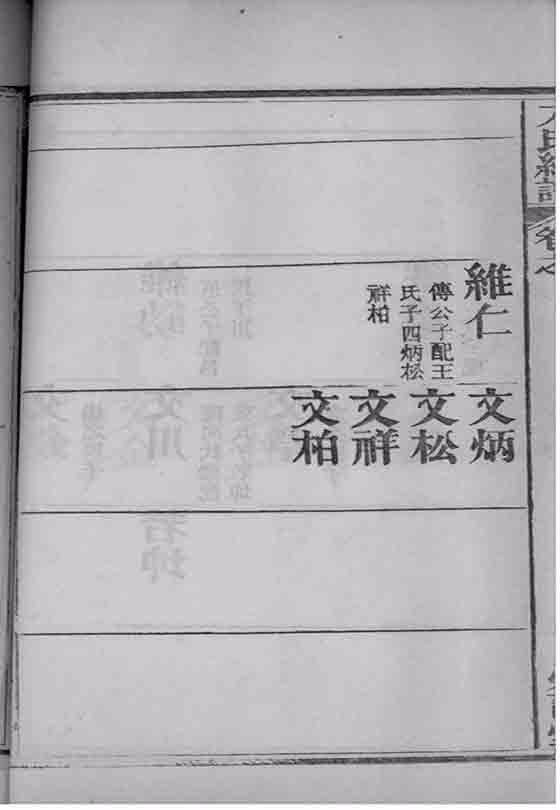 氏統譜
卷之
維仁
傳公子配王
氏子四炳松
祥柏
文炳
文松
文祥
文柏